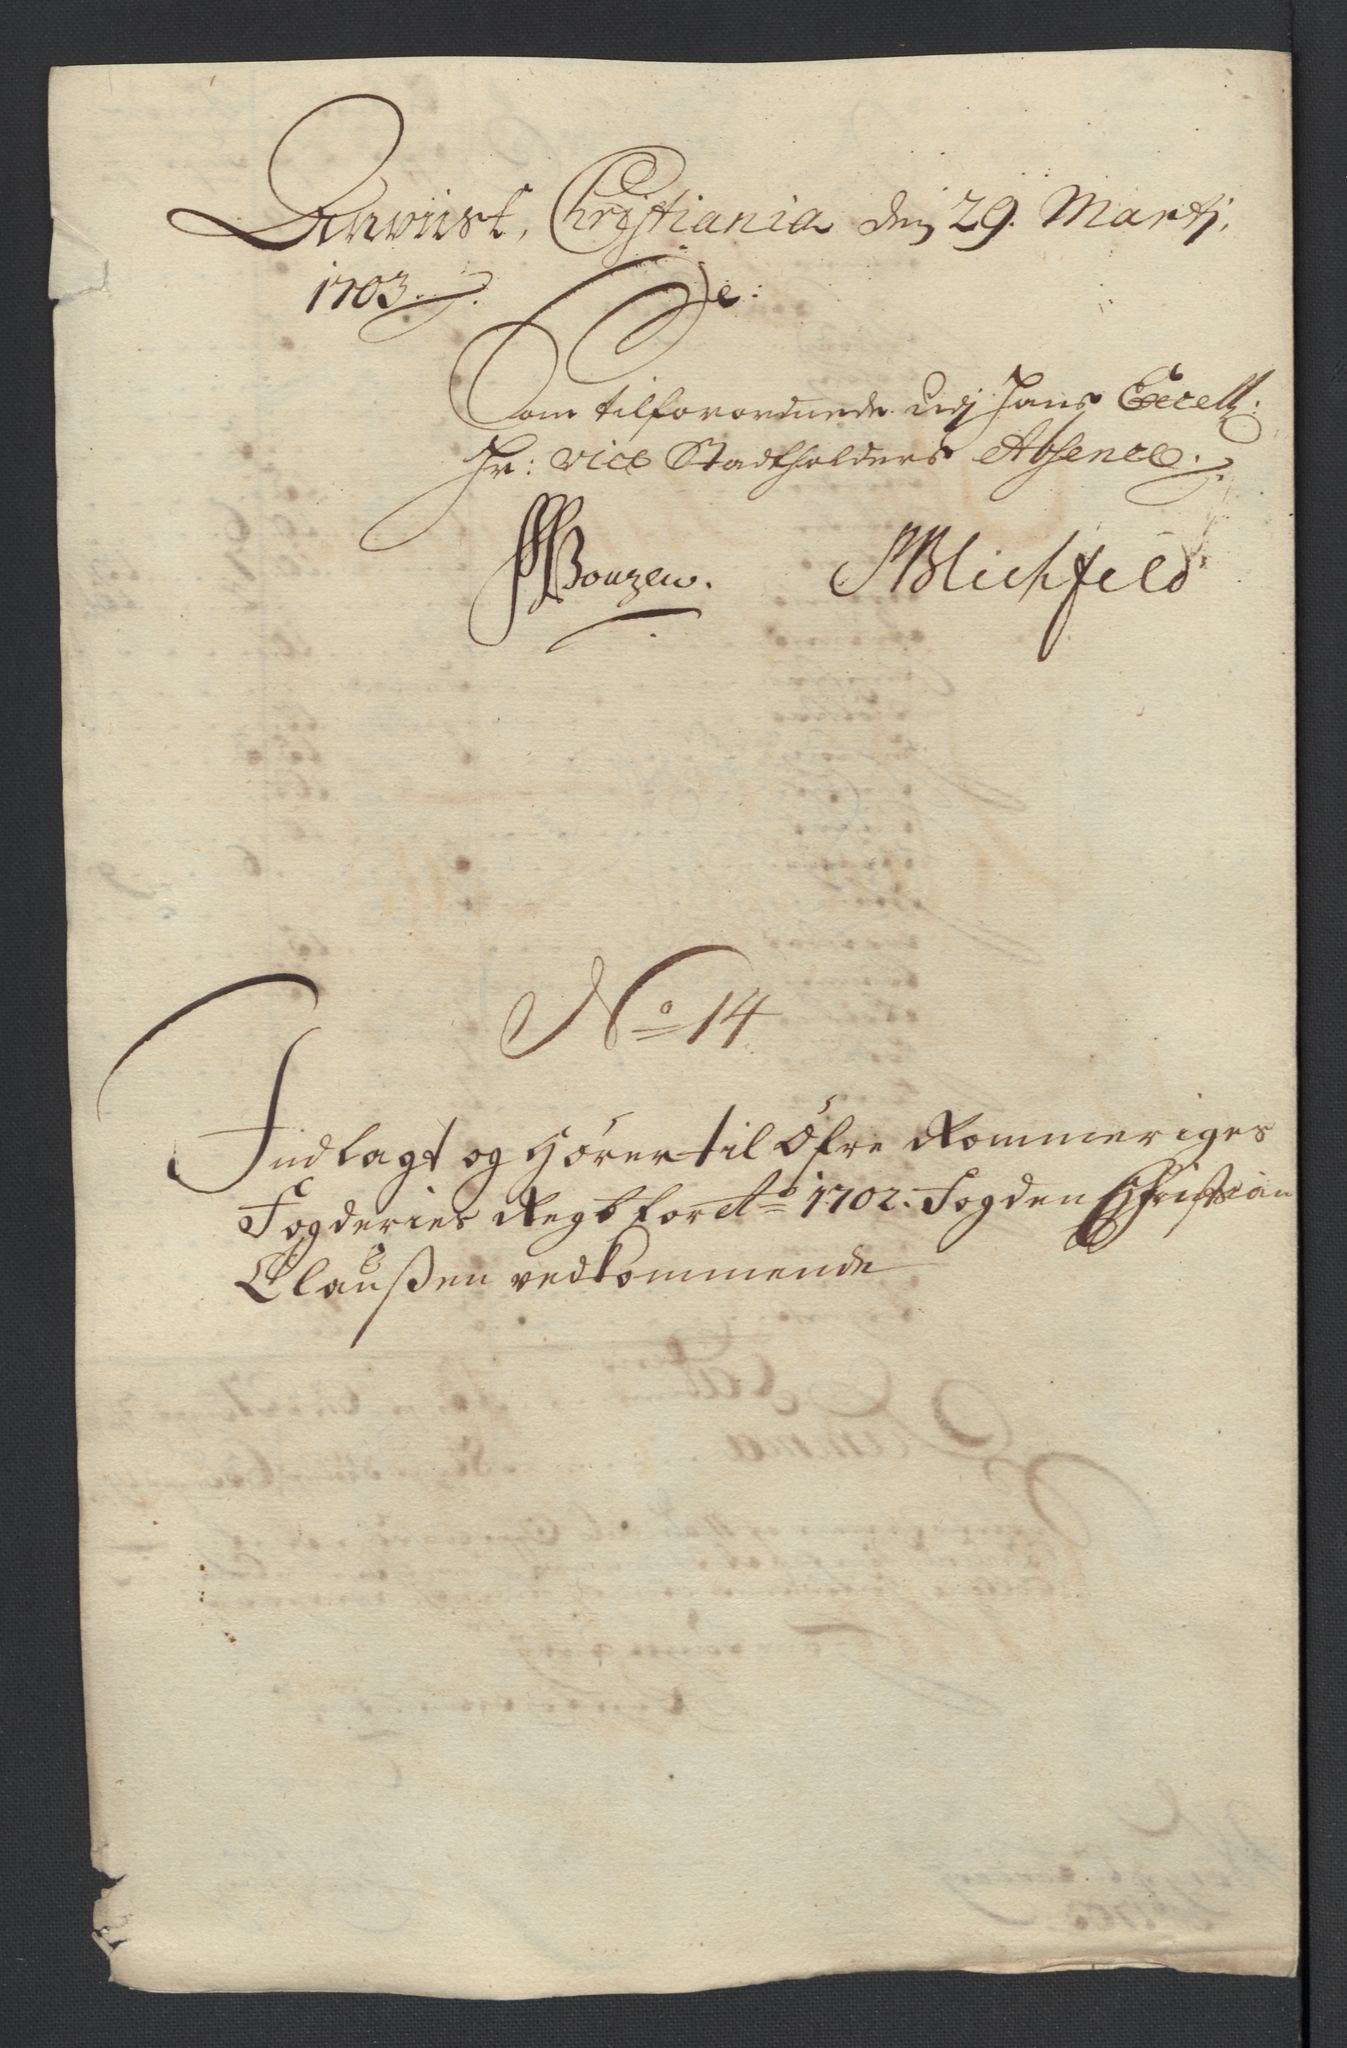 Anviist, Christiania den 29. Martj,
1703. De:
Som tilforordnede udj Hans Excell:
Hr: vice Stadtholders Absence.
Bouzew. Blichfeld
No 14
Indlagt og hörer til Öfre Rommeriges
Fogderies Regsk for Ao 1702. Fogden Christian
Claußen vedkommende